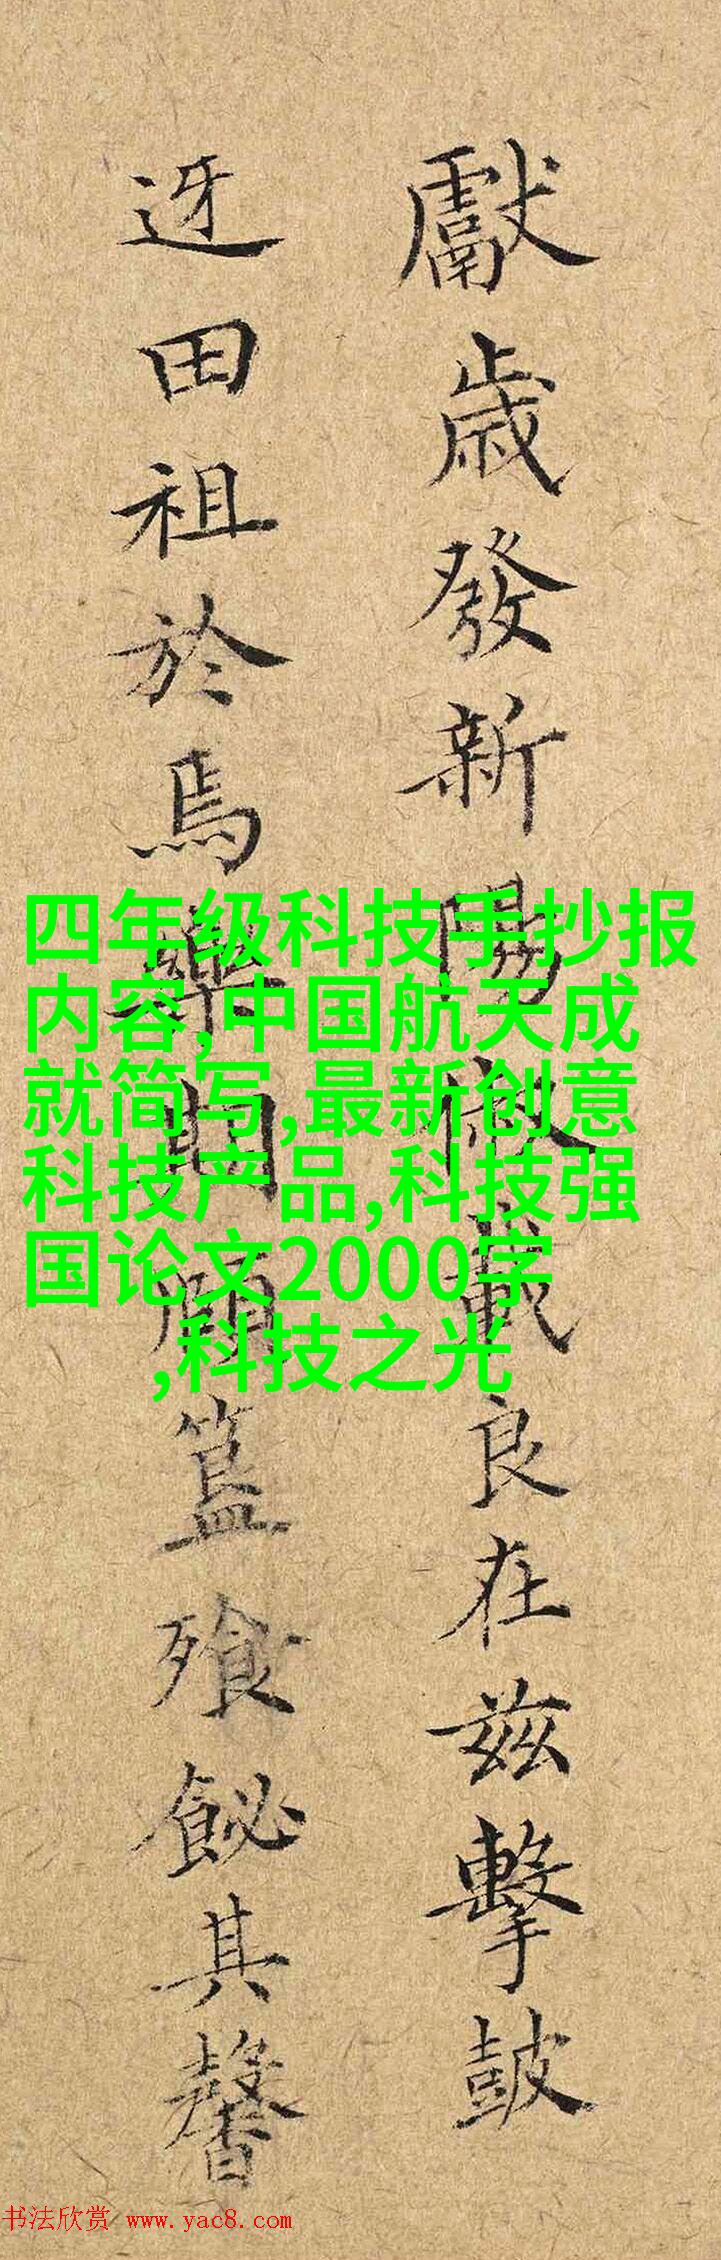 獻歲發新陽俶載良在兹擊鼓
迓田祖於焉樂田畯簋飱飶其馨
四年级科技手抄报
内容,中国航天成
就简写,最新创意
科技产品,科技强
国论文2000字
,科技之光
书法欣赏 www.yac8.com